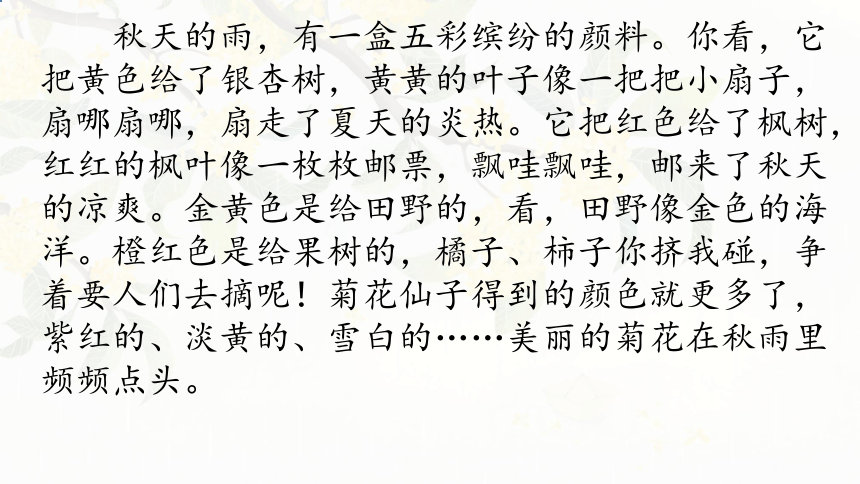 秋天的雨，有一盒五彩缤纷的颜料。你看，它
把黄色给了银杏树，黄黄的叶子像一把把小扇子，
扇哪扇哪，扇走了夏天的炎热。它把红色给了枫树，
红红的枫叶像一枚枚邮票，飘哇飘哇，邮来了秋天
的凉爽。金黄色是给田野的，看，田野像金色的海
洋。橙红色是给果树的，橘子、柿子你挤我碰，争
着要人们去摘呢！菊花仙子得到的颜色就更多了，
紫红的、淡黄的、雪白的……美丽的菊花在秋雨里
频频点头。